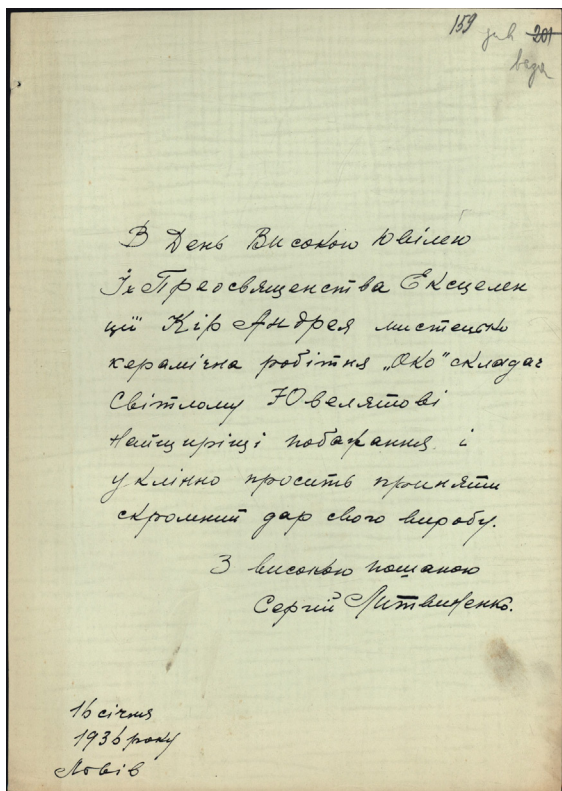 159 201
ваза
В День Високого Ювілею
Їх Преосвященства Ексцелен
ції Кір Андрея мистецько
керамічна робітня „Око" складає
Світлому Ювелятові
Найщиріщі побажання і
уклінно просить приняти
скромний дар свого виробу.
З високою пошаною
Сергій Литвиненко.
16 січня
1936 року
Львів